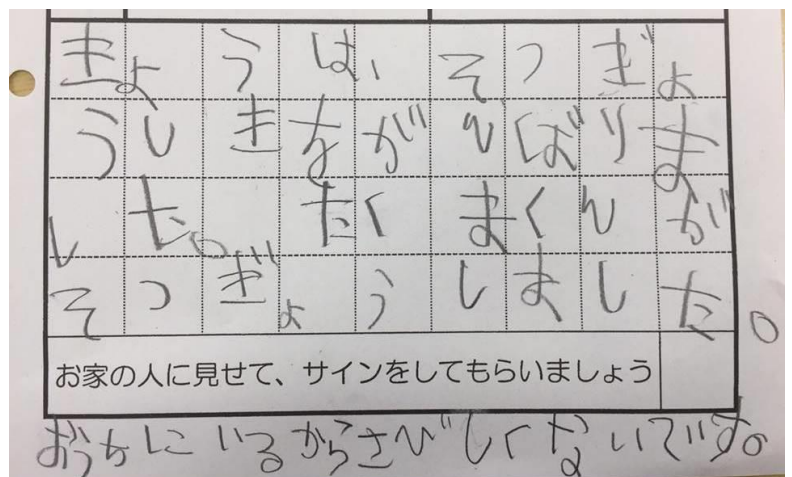 きょうは、そつぎょ
うしきをがんばりま
した。たくまくんが
そつぎょうしました。
お家の人に見せて、サインをしてもらいましょう
おうちにいるからさびしくないです。